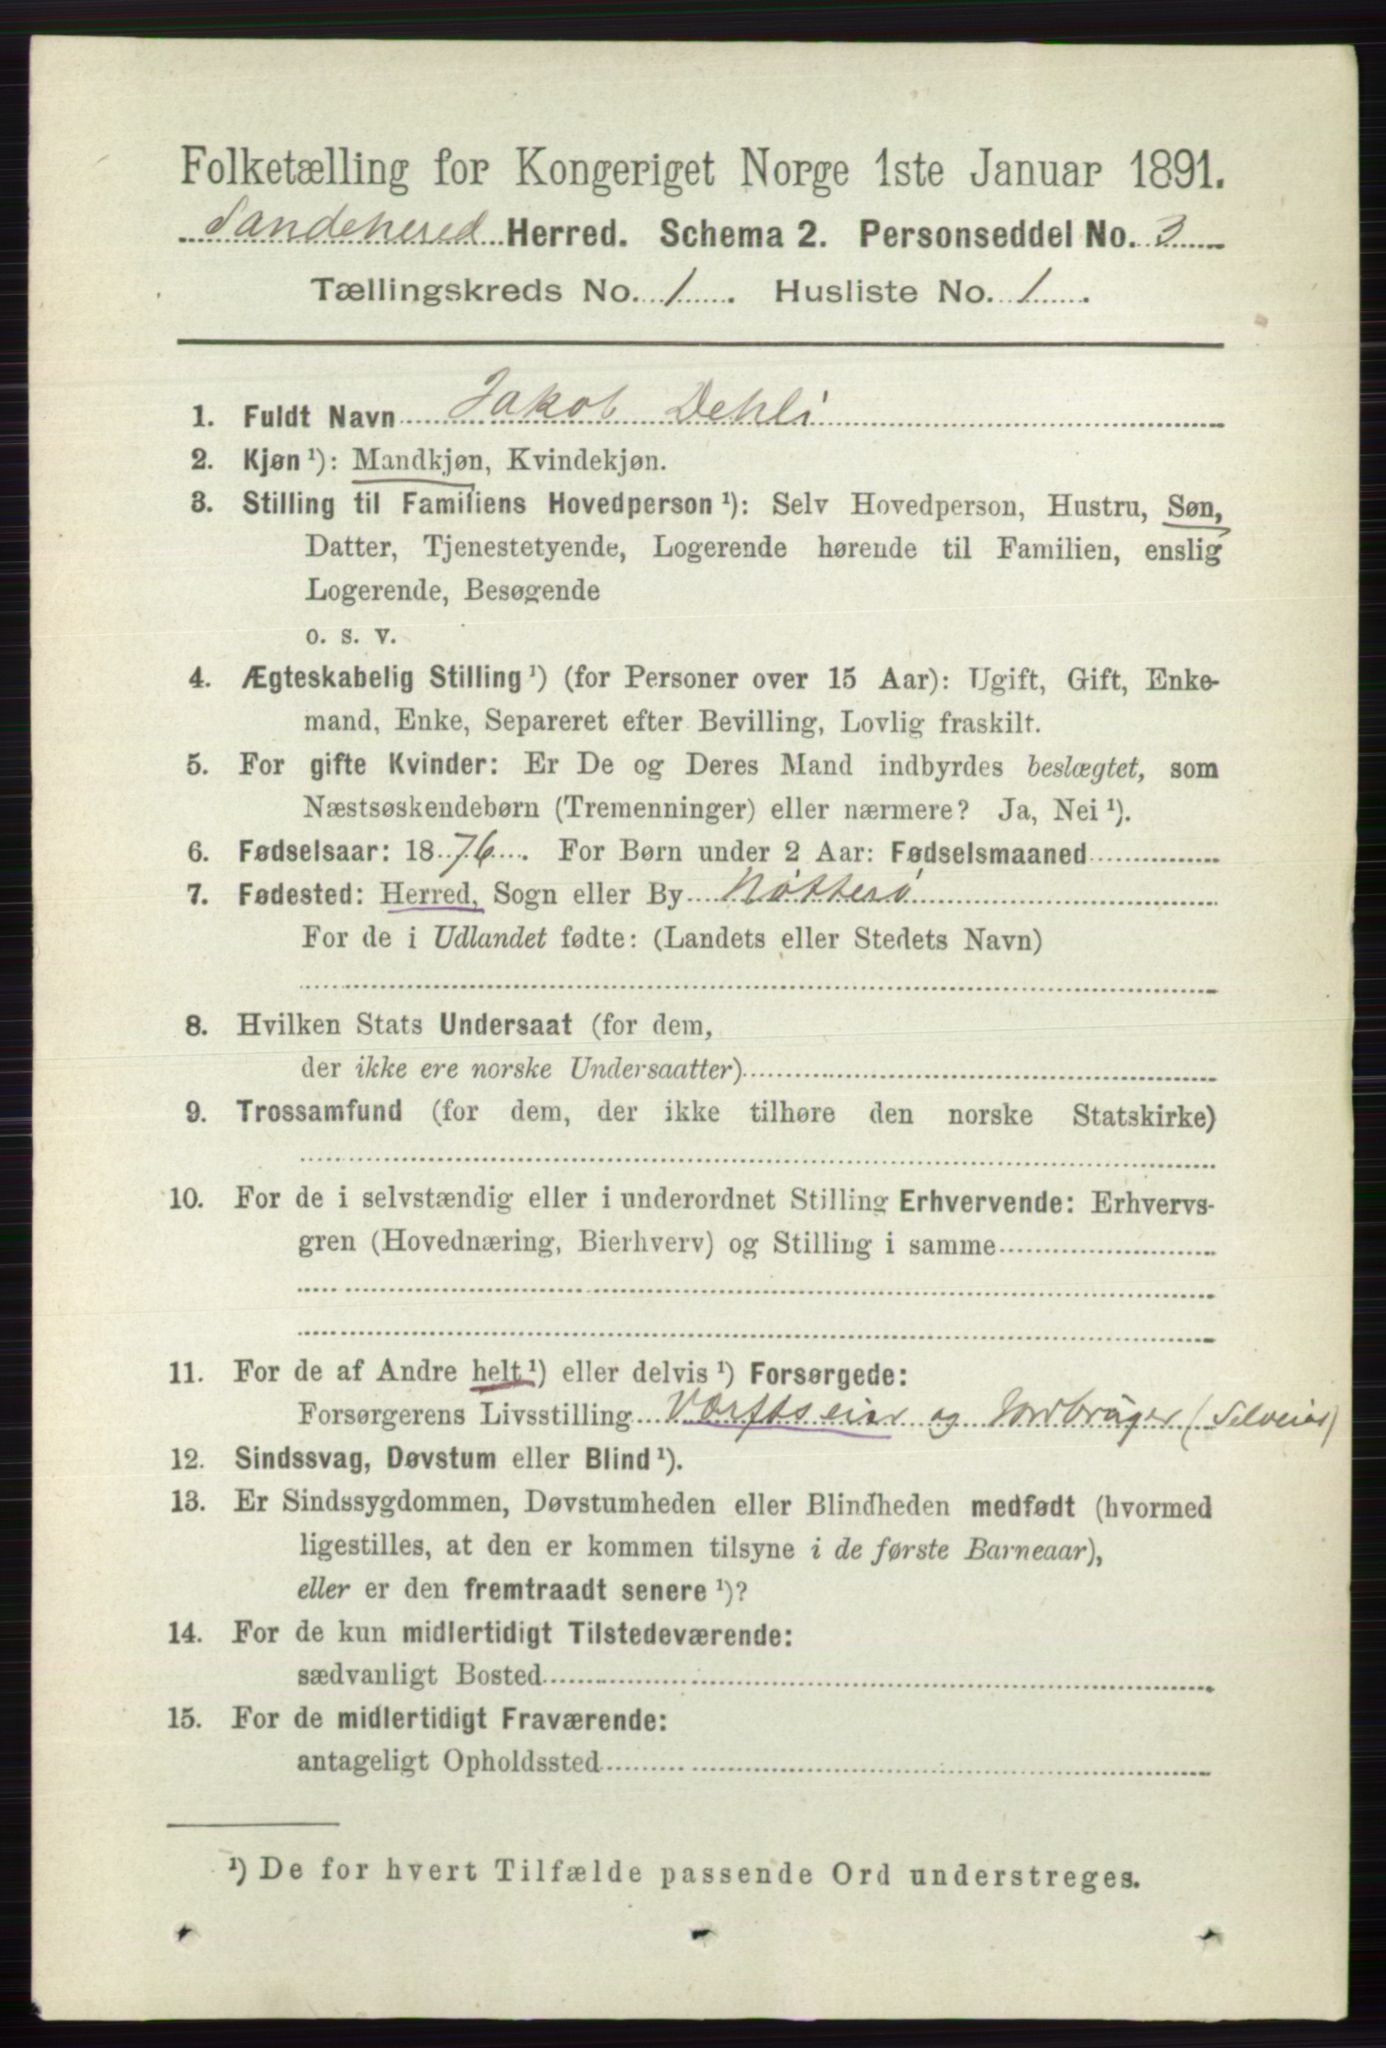 Folketælling for Kongeriget Norge 1ste Januar 1891.
Sandehered Herred. Schema 2. Personseddel No. 3
Tællingskreds No. 1. Husliste No. 1.
1. Fuldt Navn Jakob Dehli
2. Kjøn ¹): Mandkjøn, Kvindekjøn.
3. Stilling til Familiens Hovedperson ¹): Selv Hovedperson, Hustru, Søn,
Datter, Tjenestetyende, Logerende hørende til Familien, enslig
Logerende, Besøgende
o. s. v.
4. Ægteskabelig Stilling ¹) (for Personer over 15 Aar): Ugift, Gift, Enke-
mand, Enke, Separeret efter Bevilling, Lovlig fraskilt.
5. For gifte Kvinder: Er De og Deres Mand indbyrdes beslægtet, som
Næstsøskendebørn (Tremenninger) eller nærmere? Ja, Nei ¹).
6. Fødselsaar: 1876. For Børn under 2 Aar: Fødselsmaaned
7. Fødested: Herred, Sogn eller By Nøtterø
For de i Udlandet fødte: (Landets eller Stedets Navn)
8. Hvilken Stats Undersaat (for dem,
der ikke ere norske Undersaatter)
9. Trossamfund (for dem, der ikke tilhøre den norske Statskirke)
10. For de i selvstændig eller i underordnet Stilling Erhvervende: Erhvervs-
gren (Hovednæring, Bierhverv) og Stilling i samme
11. For de af Andre helt ¹) eller delvis ¹) Forsørgede:
Forsørgerens Livsstilling Værftseier og Jordbruger (Selveier)
12. Sindssvag, Døvstum eller Blind ¹).
13. Er Sindssygdommen, Døvstumheden eller Blindheden medfødt (hvormed
ligestilles, at den er kommen tilsyne i de første Barneaar),
eller er den fremtraadt senere ¹)?
14. For de kun midlertidigt Tilstedeværende:
sædvanligt Bosted
15. For de midlertidigt Fraværende:
antageligt Opholdssted
¹) De for hvert Tilfælde passende Ord understreges.